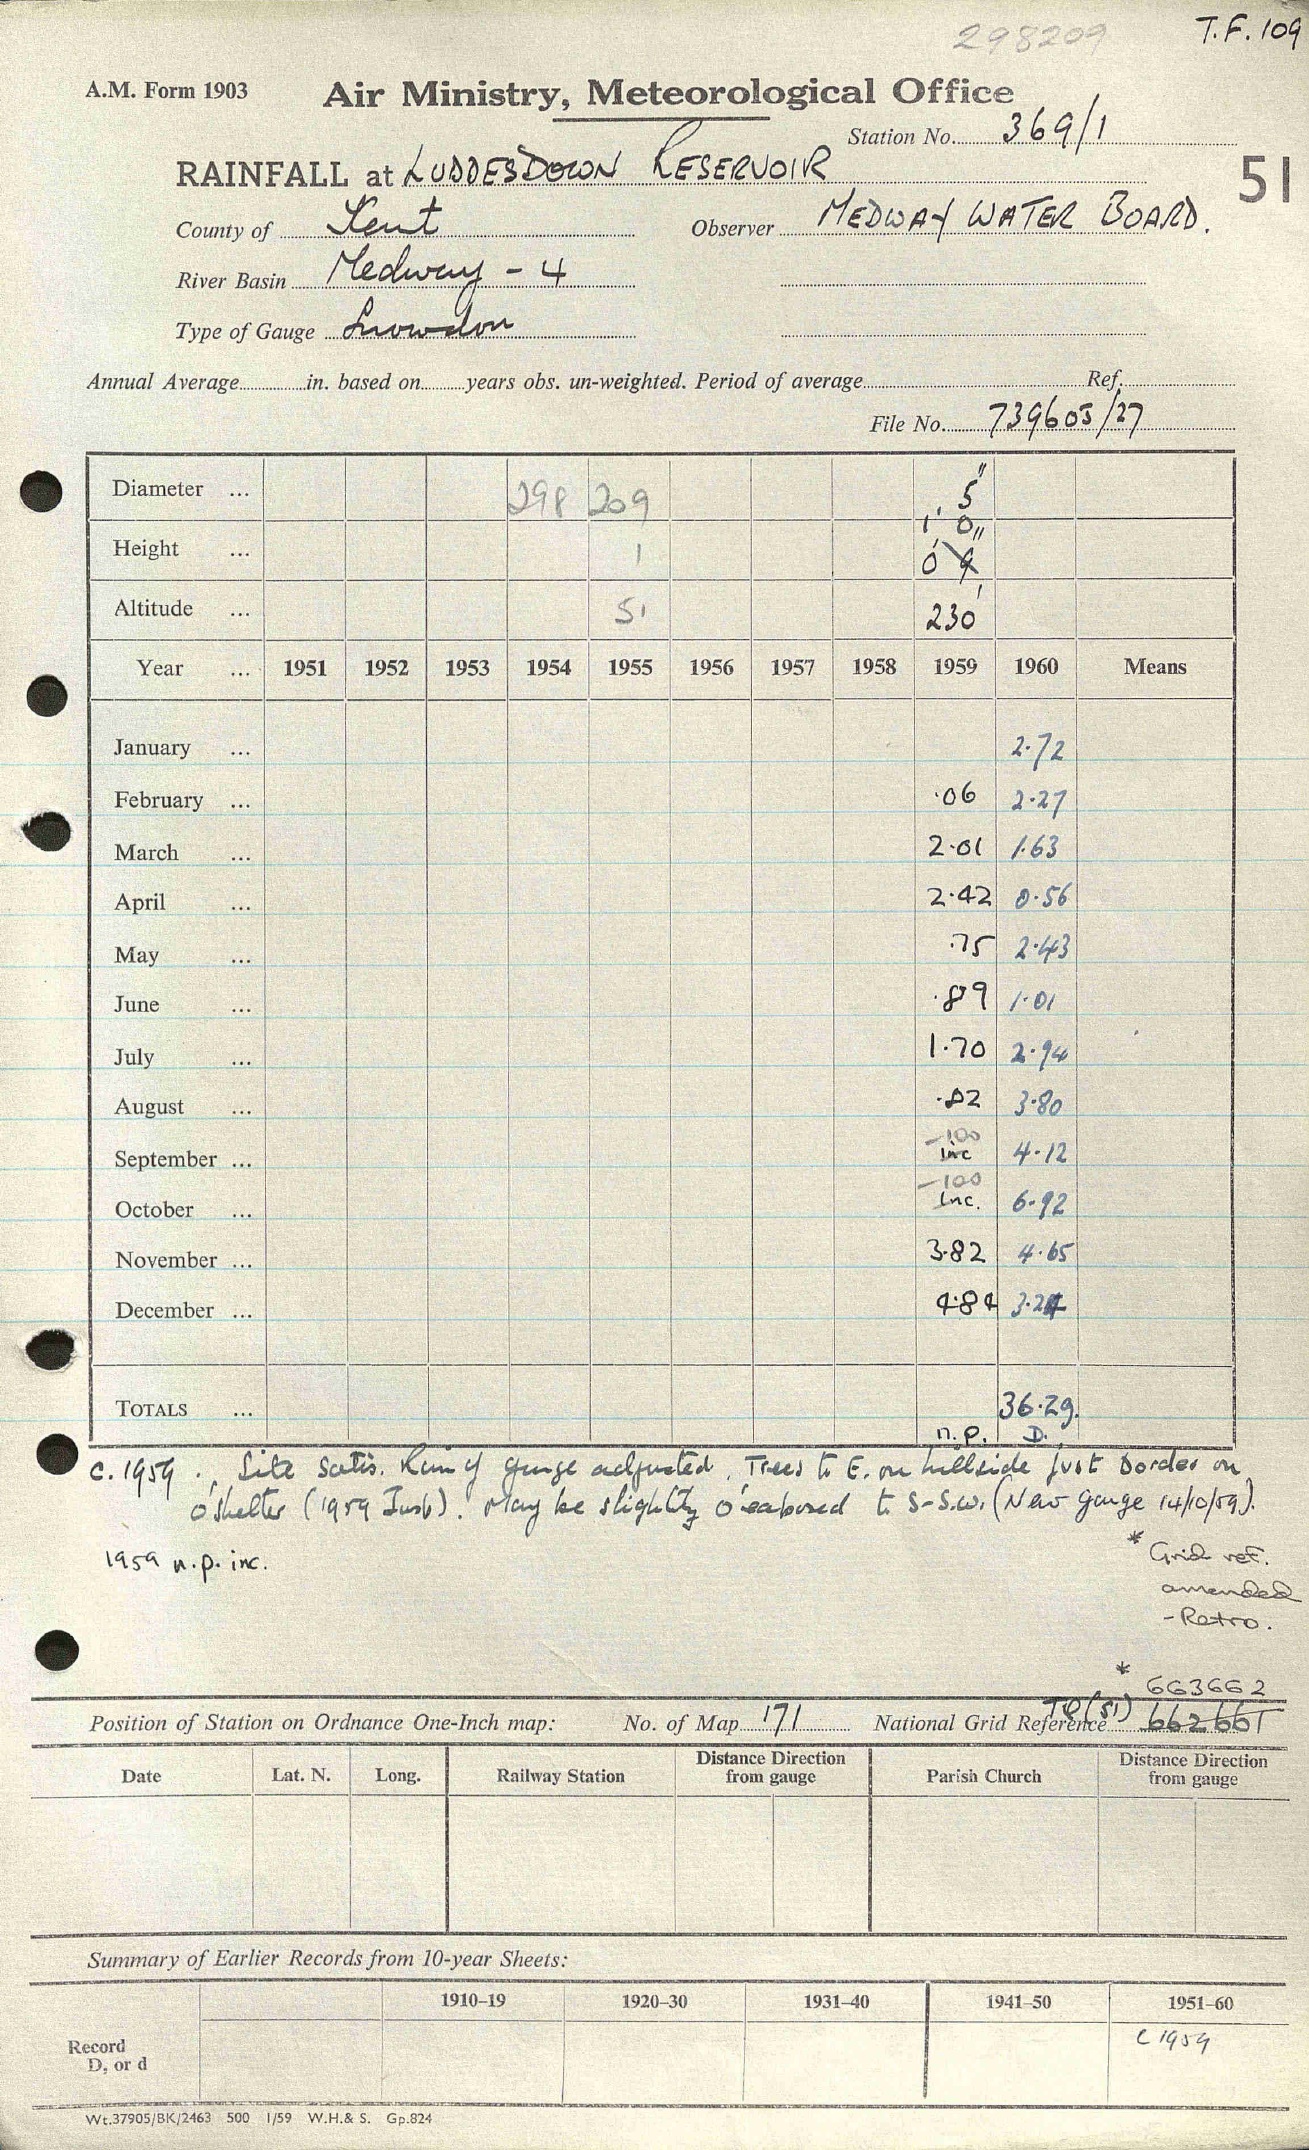 298209
T.F. 109
A.M. Form 1903
Air Ministry, Meteorological Office
Station No. 369/1
RAINFALL at LUDDESDOWN RESERVOIR
51
County of Kent
Observer MEDWAY WATER BOARD.
River Basin Medway - 4
Type of Gauge Snowdon
Annual Average in. based on years obs. un-weighted. Period of average Ref.
File No. 739605/27
Diameter ... 298 209 5"
1' 0"
Height ... 1 0' 9"
Altitude ... 51 230'
Year ... 1951 1952 1953 1954 1955 1956 1957 1958 1959 1960 Means
January ... 2.72
February ... .06 2.27
March ... 2.01 1.63
April ... 2.42 0.56
May ... .75 2.43
June ... .89 1.01
July ... 1.70 2.94
August ... .82 3.80
-100
September ... Inc 4.12
-100
October ... Inc. 6.92
November ... 3.82 4.65
December ... 4.84 3.24
TOTALS ... 36.29.
n.p. D.
c. 1959. Site satis. Rim of gauge adjusted. Trees to E. on hillside just border on
o'shelter (1959 Insp). May be slightly o'exposed to S-S.W. (New gauge 14/10/59).
1959 n.p. inc.
* Grid ref.
amended
- Retro.
* 663662
Position of Station on Ordnance One-Inch map: No. of Map 171 National Grid Reference TQ (51) 662661
Date Lat. N. Long. Railway Station Distance Direction from gauge Parish Church Distance Direction from gauge
Summary of Earlier Records from 10-year Sheets:
1910-19 1920-30 1931-40 1941-50 1951-60
Record
D, or d
c 1959
Wt.37905/BK/2463 500 1/59 W.H.& S. Gp.824